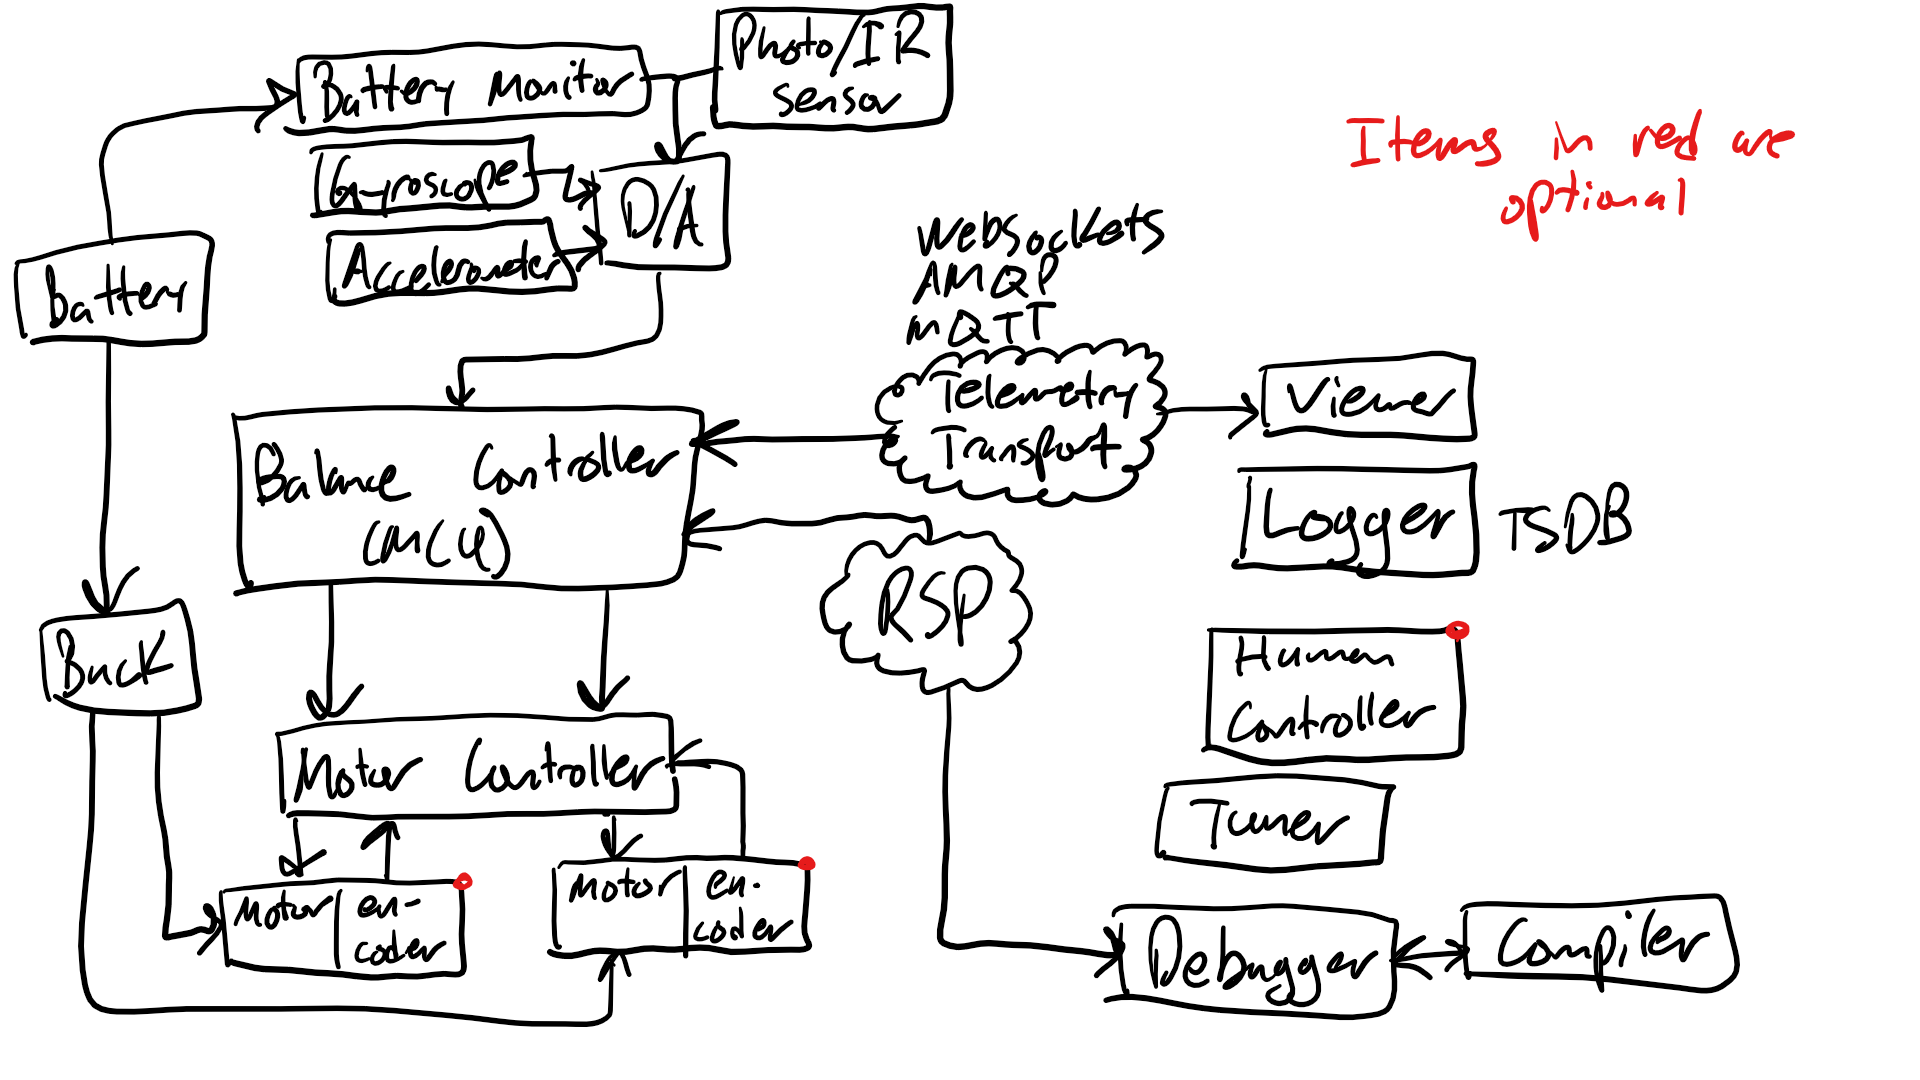 Battery Monitor
Photo/IR
sensor
Gyroscope
D/A
Accelerometer
Battery
Items in red are
optional
Websockets
AMQP
MQTT
Telemetry
Transport
Viewer
Balance Controller
(MCU)
Logger
TSDB
RSP
Buck
Human
Controller
Motor Controller
Tuner
Motor
en-
coder
Motor
en-
coder
Debugger
Compiler